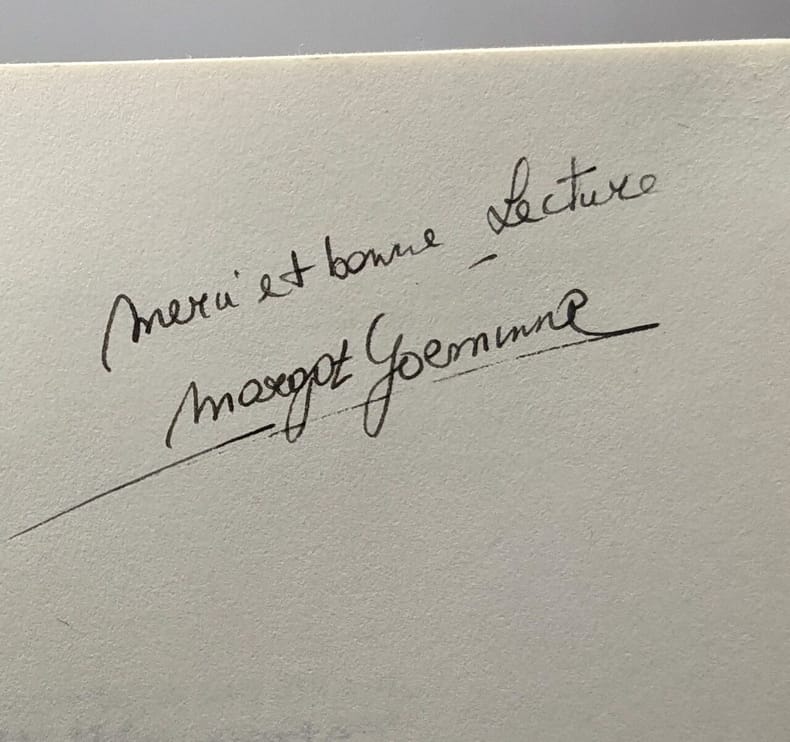 Merci et bonne Lecture
Margot Goeminne